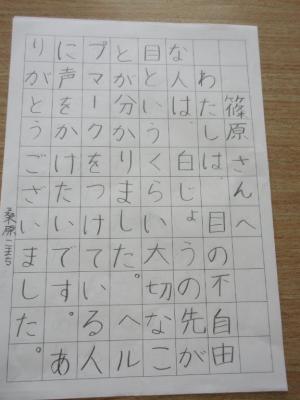 篠原さんへ
わたしは、目の不自由
な人は、白じょうの先が
目というくらい大切なこ
とが分かりました。ヘル
プマークをつけている人
に声をかけたいです。あ
りがとうございました。
桑原こまち